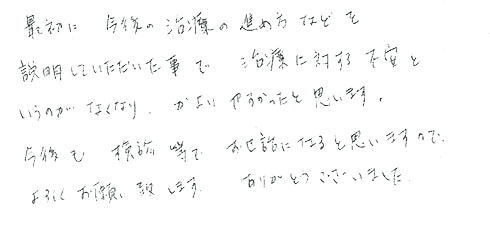 最初に 今後の治療の進め方などを
説明していただいた事で 治療に対する不安と
いうのがなくなり、かよいやすかったと思います。
今後も 検診等で お世話になると思いますので、
よろしくお願い致します。 ありがとうございました。